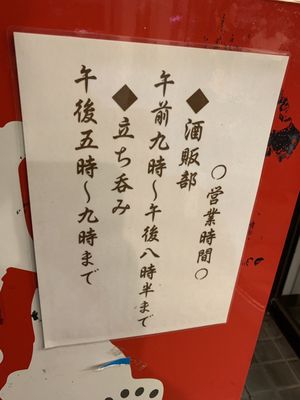 〇営業時間〇
◆酒販部
午前九時～午後八時半まで
◆立ち呑み
午後五時～九時まで